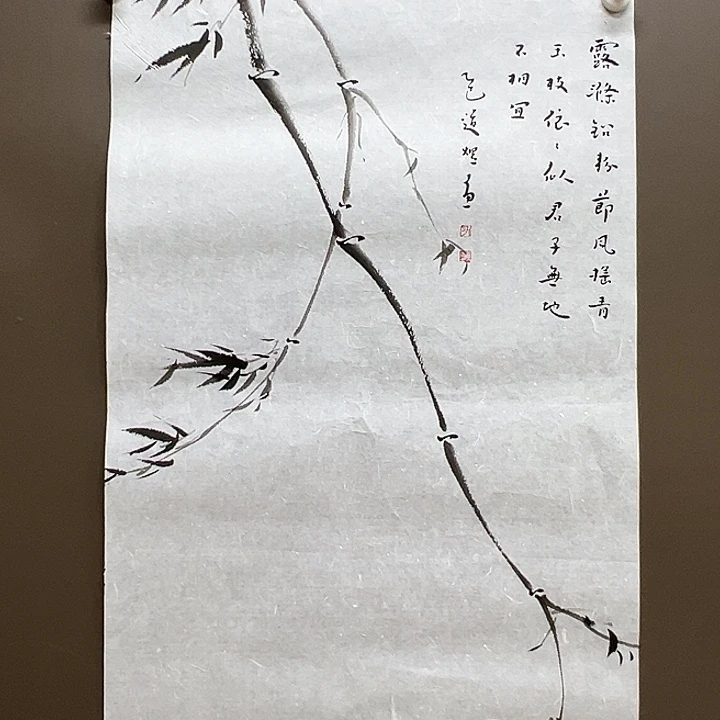 露滌鉛粉節風搖青
玉枝依〻似君子無地
不相宜
乙巳道畫